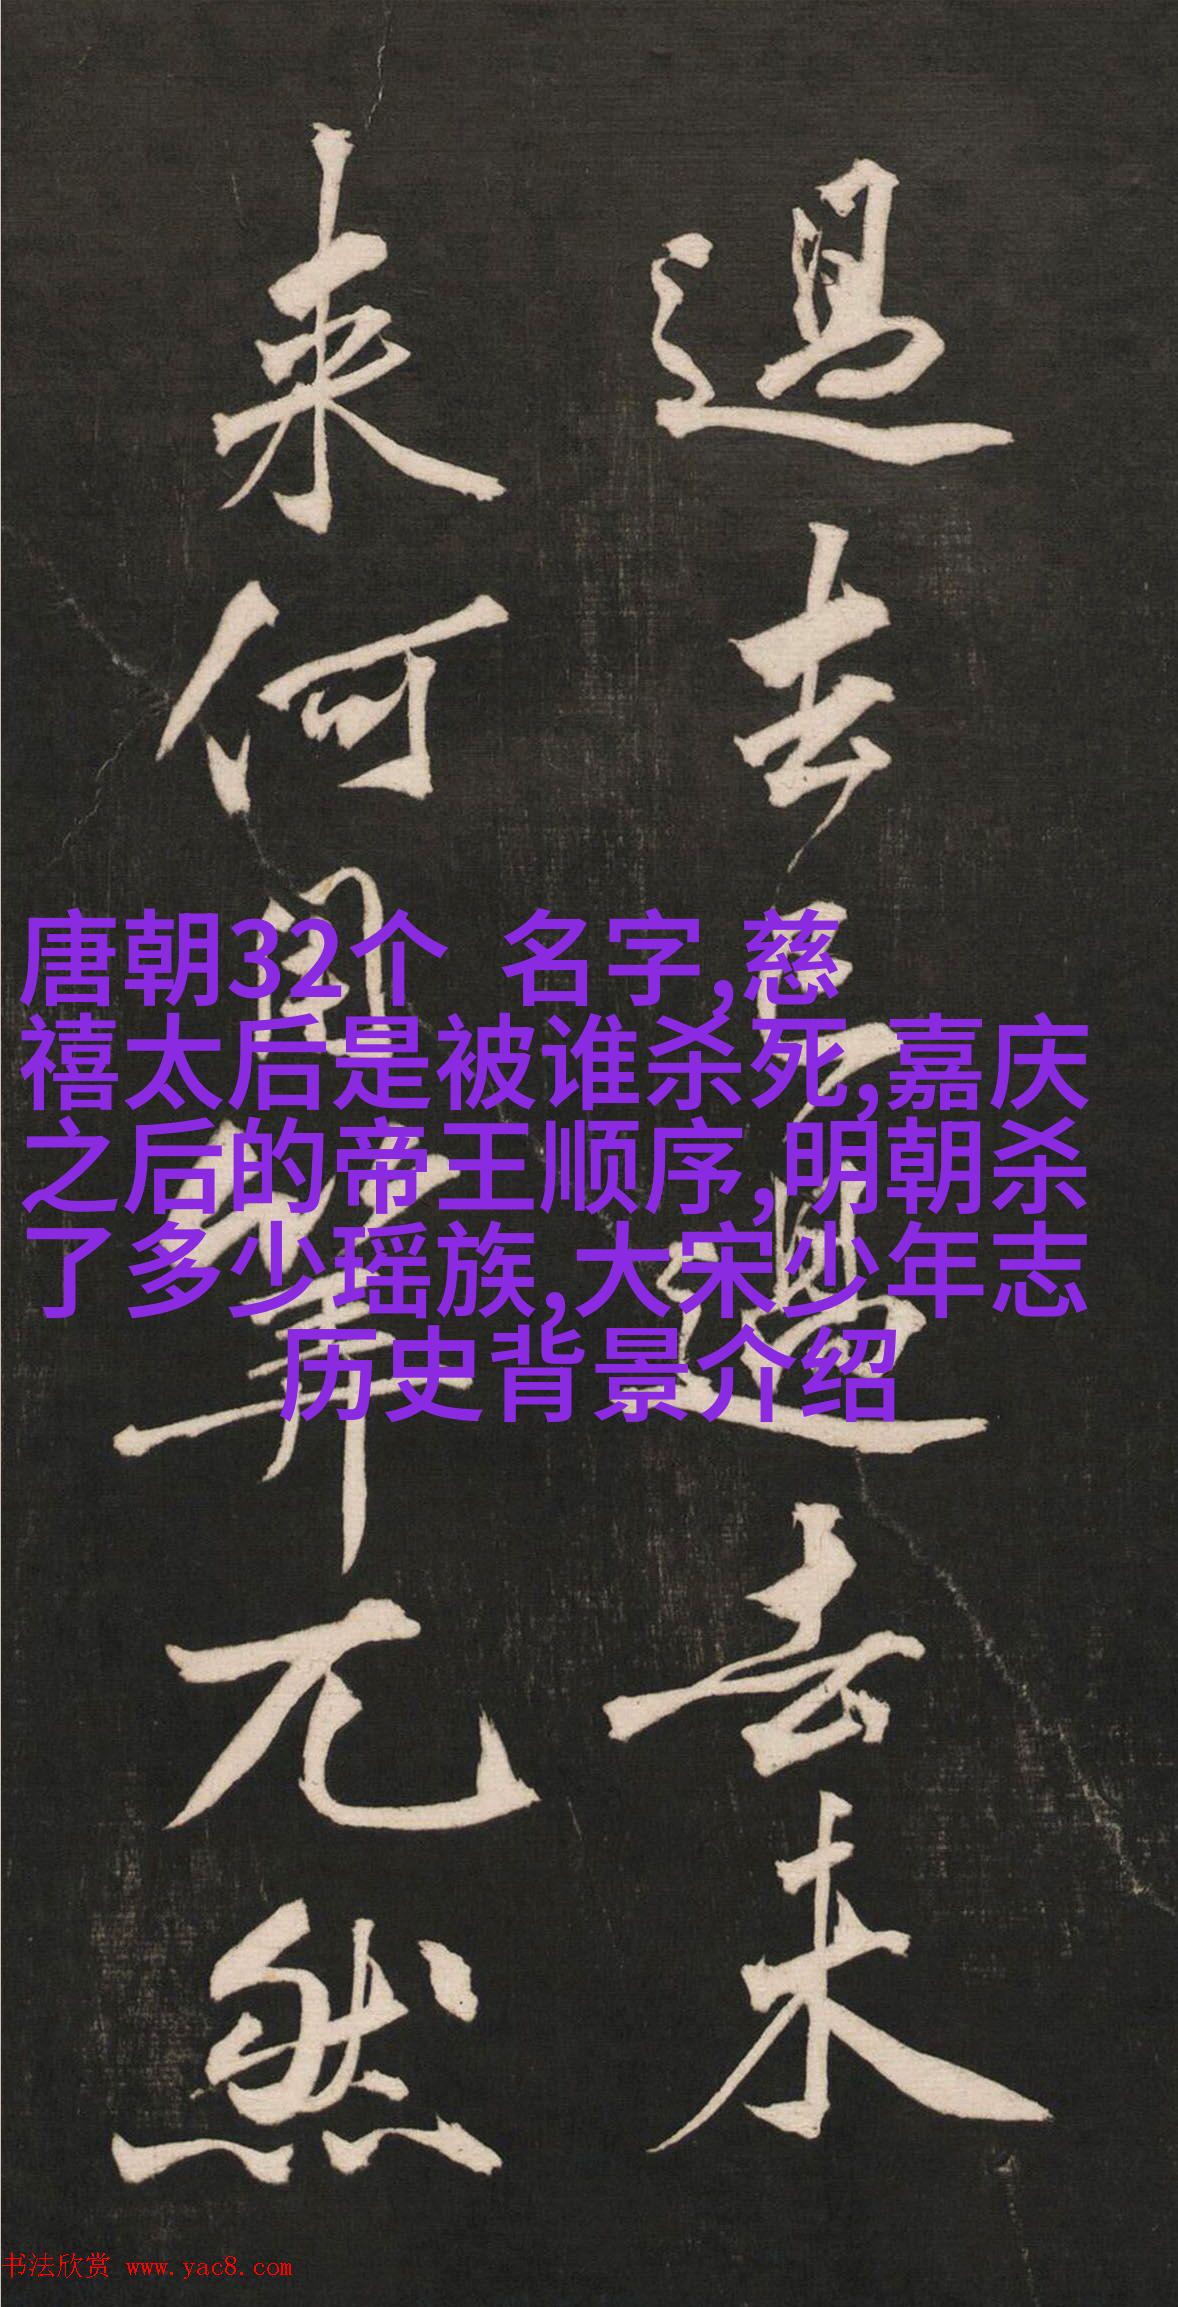 過去已過去未
来何用筭兀然
唐朝32个 名字,慈
禧太后是被谁杀死,嘉庆
之后的帝王顺序,明朝杀
了多少瑶族,大宋少年志
历史背景介绍
书法欣赏 www.yac8.com